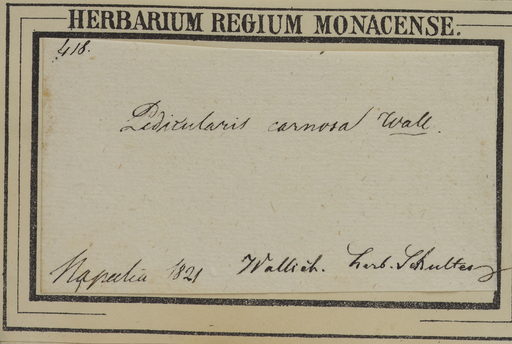 HERBARIUM REGIUM MONACENSE.
418.
Pedicularis carnosa Wall.
Napalia 1821 Wallich. herb. Schultes